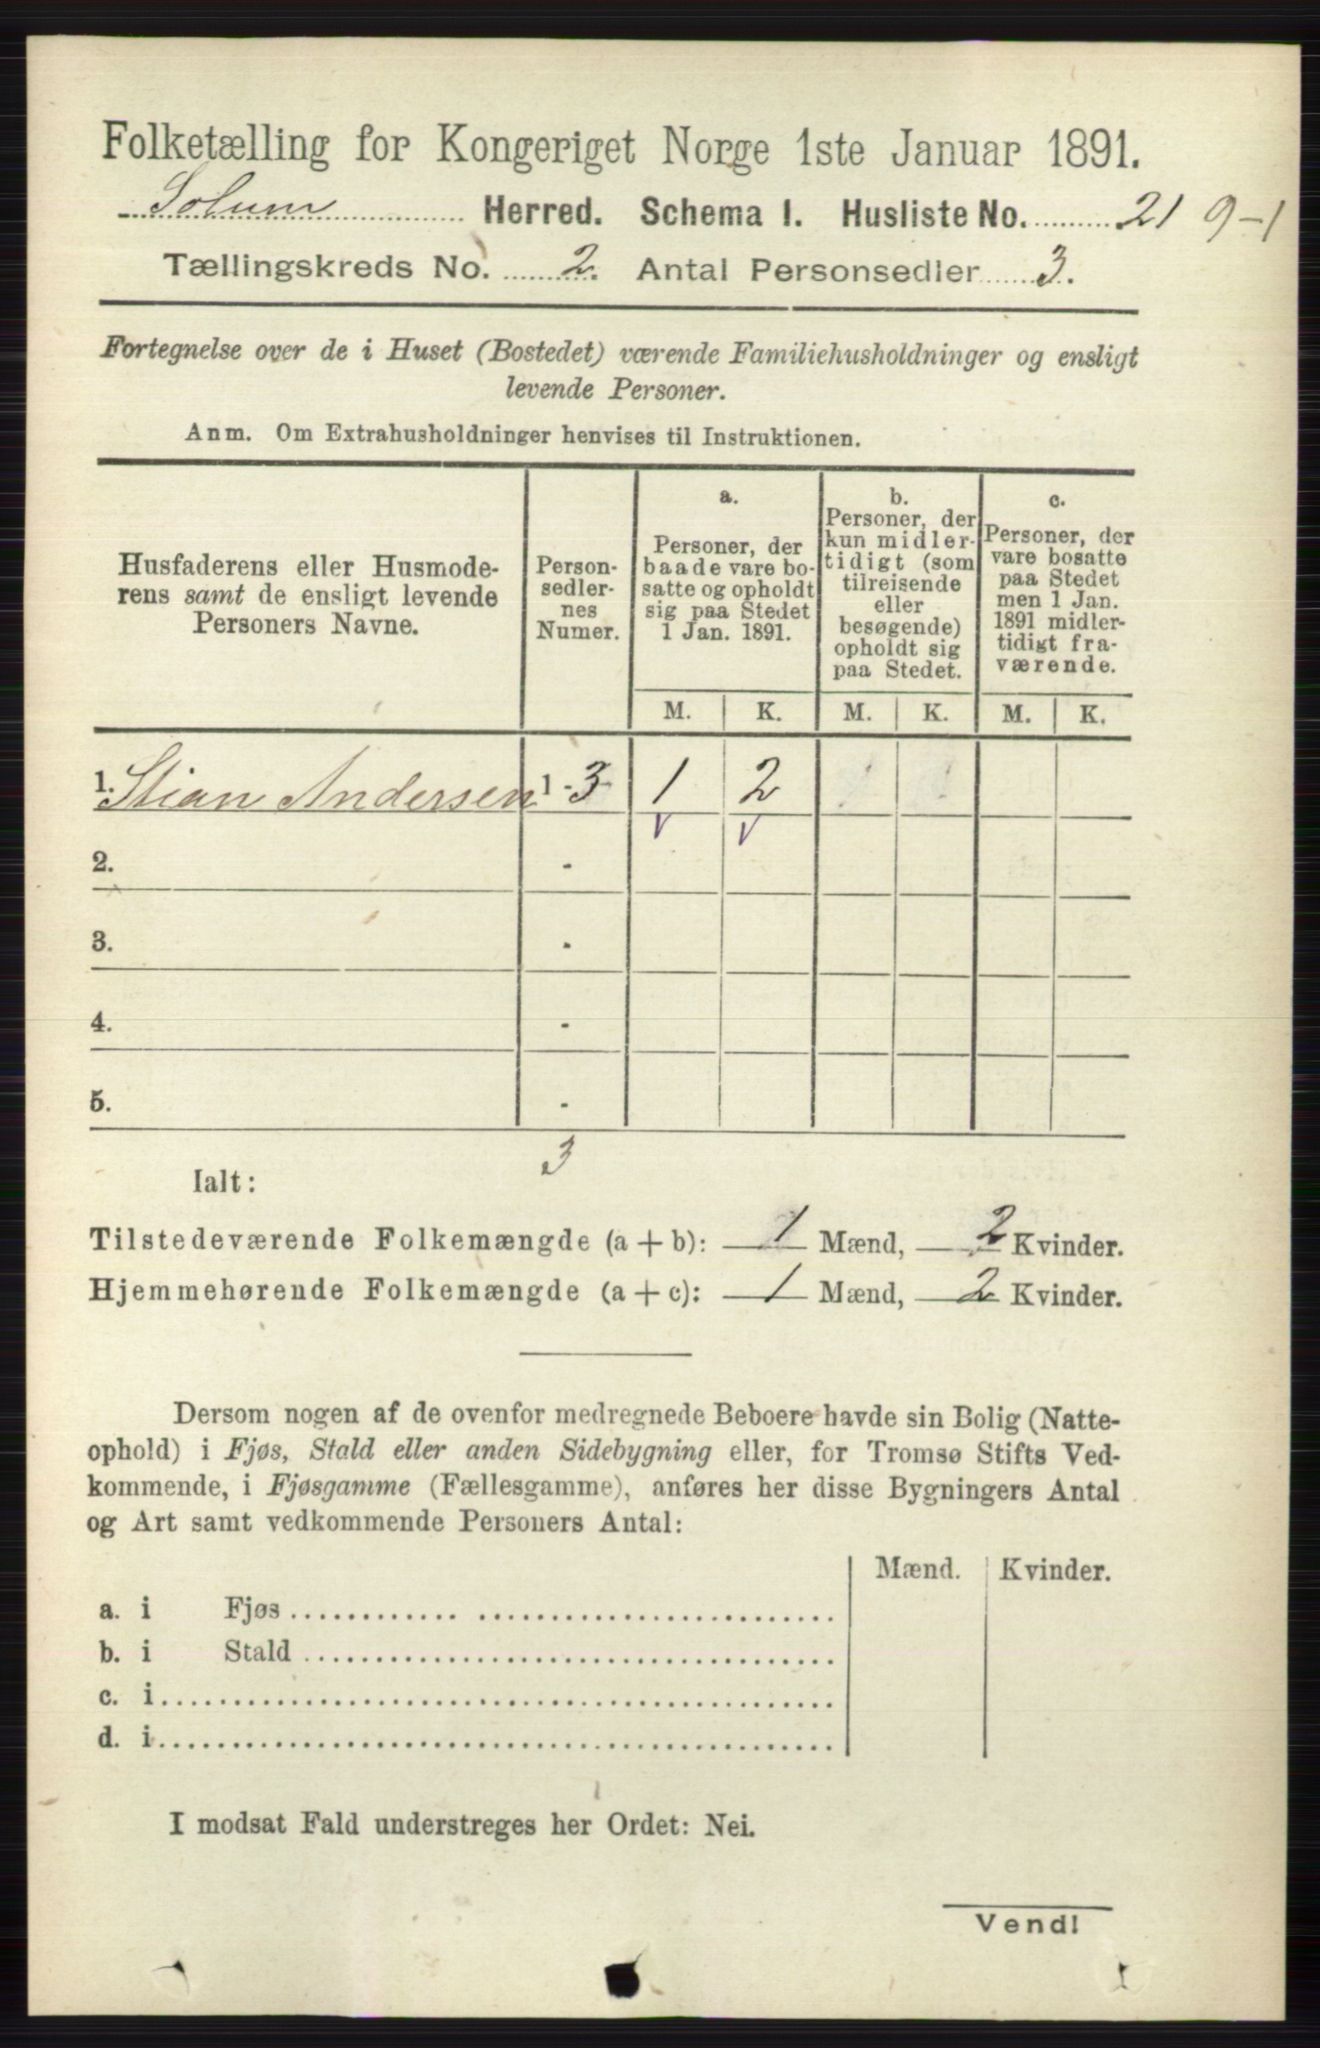 Folketælling for Kongeriget Norge 1ste Januar 1891.
Solum Herred. Schema I. Husliste No. 21 9-1
Tællingskreds No. 2. Antal Personsedler 3.
Fortegnelse over de i Huset (Bostedet) værende Familiehusholdninger og ensligt
levende Personer.
Anm. Om Extrahusholdninger henvises til Instruktionen.
Husfaderens eller Husmode-
rens samt de ensligt levende
Personers Navne.
Person-
sedler-
nes
Numer.
a.
Personer, der
baade vare bo-
satte og opholdt
sig paa Stedet
1 Jan. 1891.
b.
Personer, der
kun midler-
tidigt (som
tilreisende
eller
besøgende)
opholdt sig
paa Stedet.
c.
Personer, der
vare bosatte
paa Stedet
men 1 Jan.
1891 midler-
tidigt fra-
værende.
M. K. M. K. M. K.
1. Stian Andersen 1 - 3 1 2
2. -
3. -
4. -
5. -
3
Ialt:
Tilstedeværende Folkemængde (a + b): 1 Mænd, 2 Kvinder.
Hjemmehørende Folkemængde (a + c): 1 Mænd, 2 Kvinder.
Dersom nogen af de ovenfor medregnede Beboere havde sin Bolig (Natte-
ophold) i Fjøs, Stald eller anden Sidebygning eller, for Tromsø Stifts Ved-
kommende, i Fjøsgamme (Fællesgamme), anføres her disse Bygningers Antal
og Art samt vedkommende Personers Antal:
Mænd. Kvinder.
a. i Fjøs
b. i Stald
c. i
d. i
I modsat Fald understreges her Ordet: Nei.
Vend!